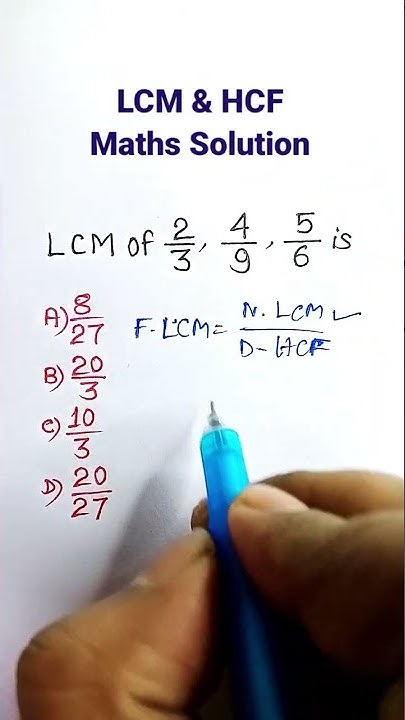 LCM & HCF
Maths Solution
LCM of 2/3, 4/9, 5/6 is
A) 8/27
B) 20/3
C) 10/3
D) 20/27
F. LCM = N. LCM ✓
D-HCF